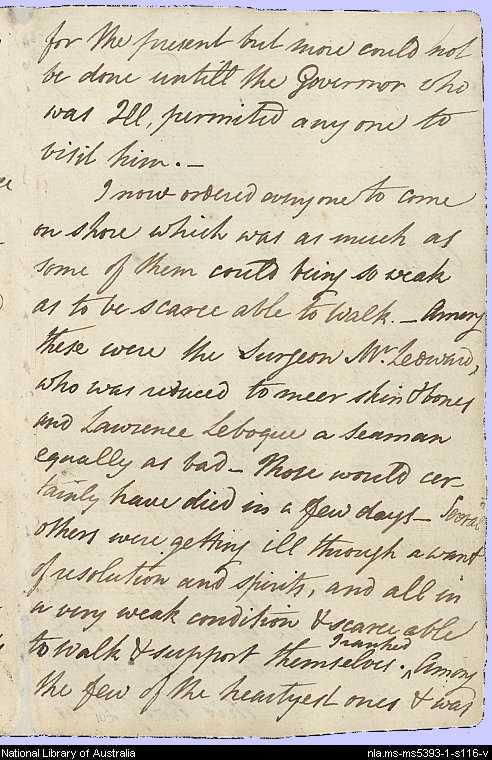 for the present but more could not
be done untill the Governor who
was Ill, permitted any one to
visit him. —
I now ordered everyone to come
on shore which was as much as
some of them could being so weak
as to be scarce able to walk. — Among
these were the Surgeon Mr. Ledward,
who was reduced to meer skin & bones
and Lawrence Lebogue a Seaman
equally as bad — Those would cer-
tainly have died in a few days — Several
others were getting ill through a want
of resolution and spirits, and all in
a very weak condition & scarce able
to walk & support themselves. ^ I ranked Among
the few of the heartyest ones & was
National Library of Australia
nla.ms-ms5393-1-s116-v